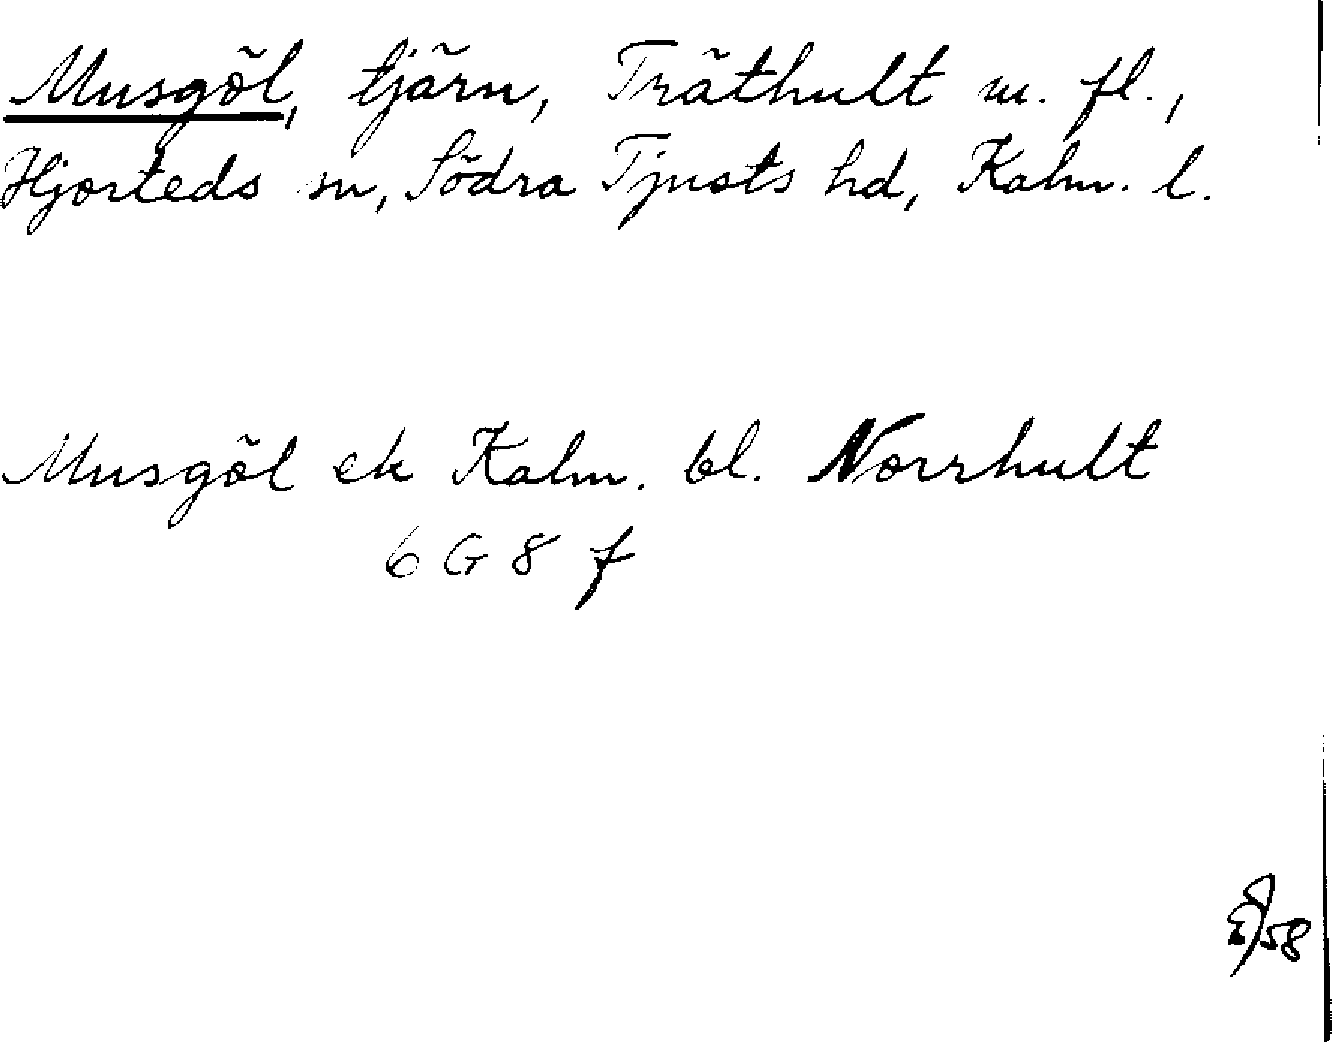 Musgöl, tjärn, Träthult m. fl.,
Hjorteds sn, Södra Tjusts hd, Kalm. l.
Musgöl ek Kalm. bl. Norrhult
6 G 8 f
58